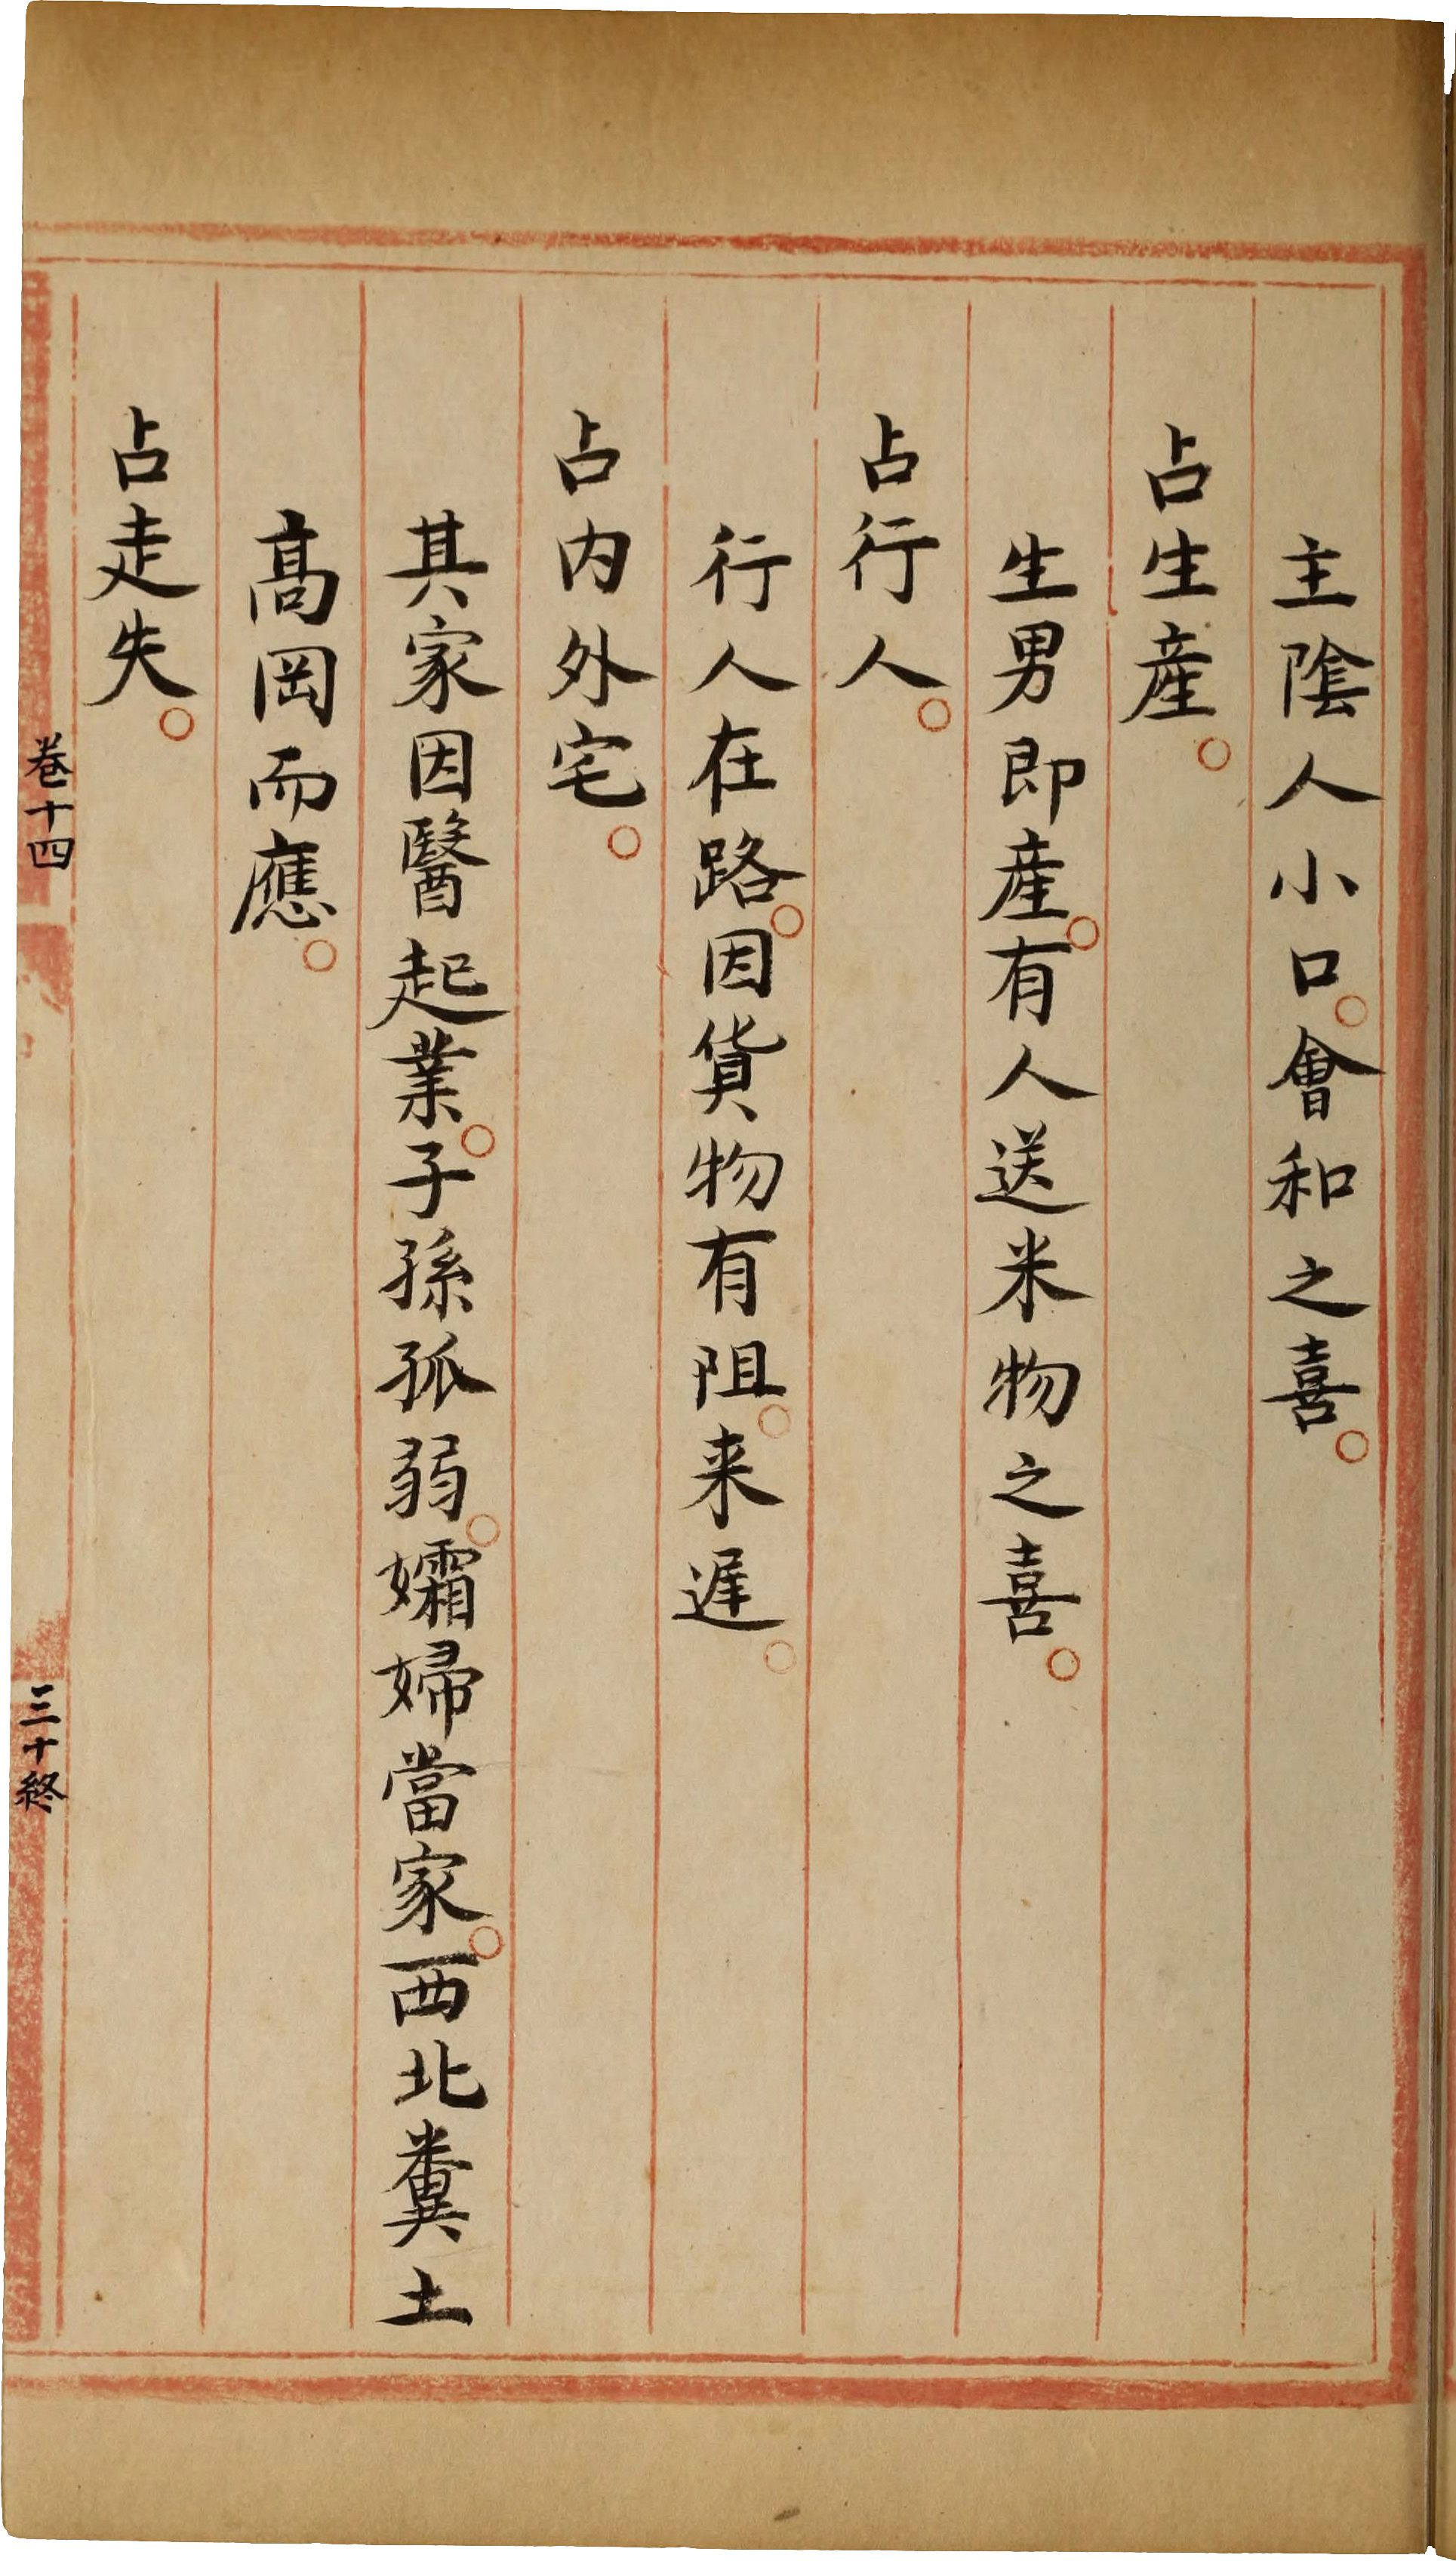 主陰人小口。會和之喜。
占生產。
生男即產。有人送米物之喜。
占行人。
行人在路。因貨物有阻。来遲。
占内外宅。
其家因醫起業。子孫孤弱。孀婦當家。西北糞土
高岡而應。
占走失。
卷十四
三十終